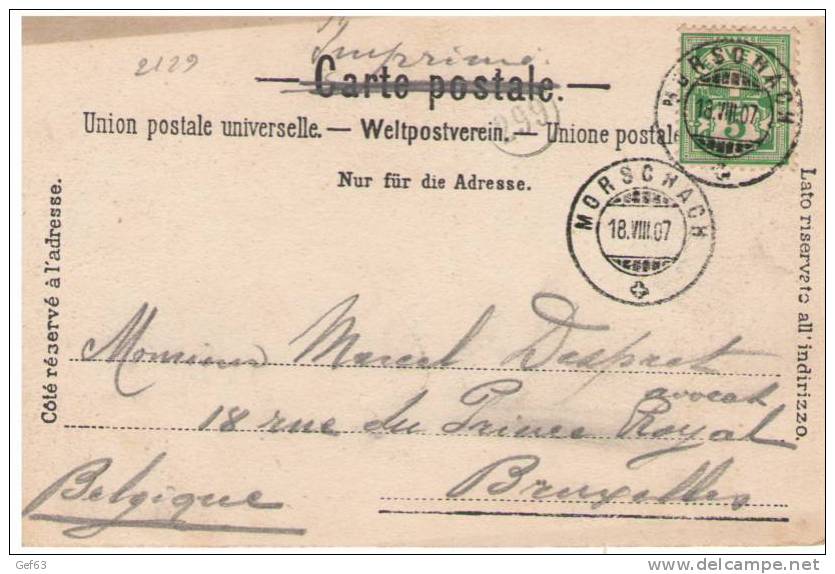 2129
Imprimé
Carte postale.
Union postale universelle. — Weltpostverein. — Unione postale
299
Nur für die Adresse.
MORSCHACH
18.VIII.07
5
MORSCHACH
18.VIII.07
Côté réservé à l'adresse.
Lato riservato all'indirizzo.
Monsieur Marcel Despret
avocat
18 rue du Prince Royal
Bruxelles
Belgique
Gef63
delcampe.net